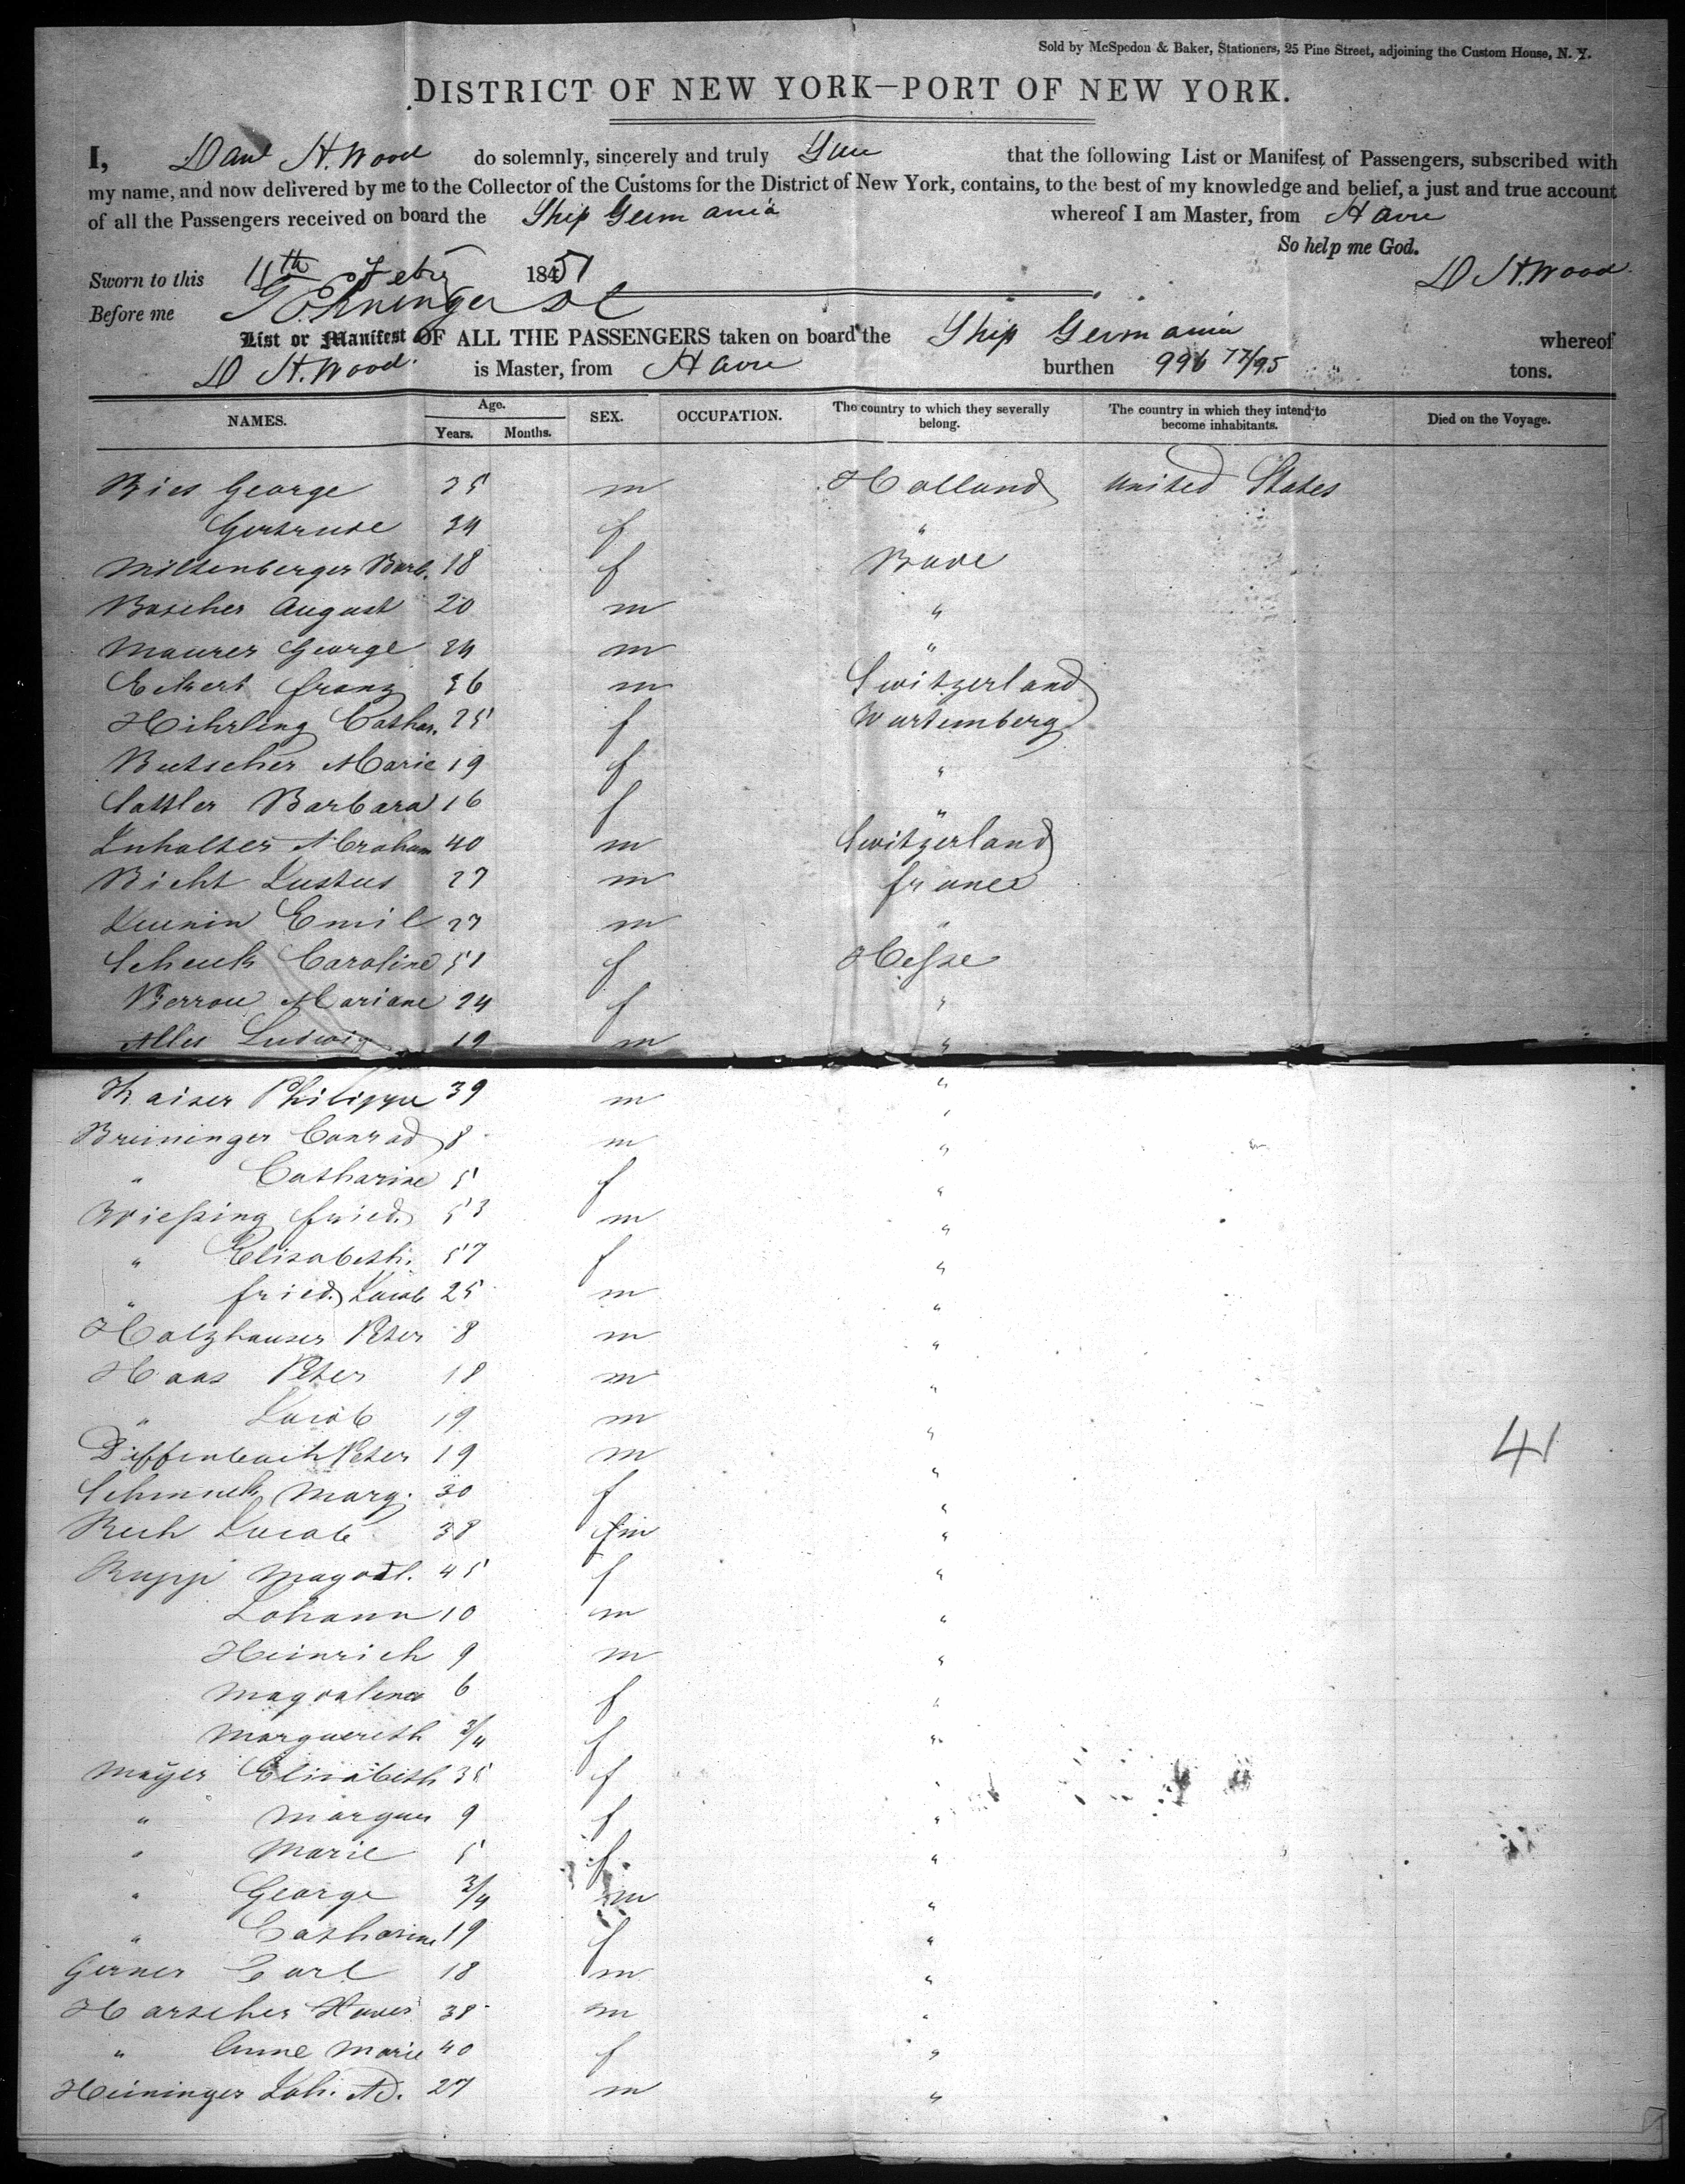 Sold by McSpedon & Baker, Stationers, 25 Pine Street, adjoining the Custom House, N. Y.
DISTRICT OF NEW YORK—PORT OF NEW YORK.
I, Danl H. Wood do solemnly, sincerely and truly that the following List or Manifest of Passengers, subscribed with
my name, and now delivered by me to the Collector of the Customs for the District of New York, contains, to the best of my knowledge and belief, a just and true account
of all the Passengers received on board the Ship Germania whereof I am Master, from Havre
So help me God.
Sworn to this 11th Feby 1851 D H. Wood
Before me
List or Manifest OF ALL THE PASSENGERS taken on board the Ship Germania whereof
D H. Wood. is Master, from Havre burthen 996 77/95 tons.
NAMES. Age. Years. Months. SEX. OCCUPATION. The country to which they severally belong. The country in which they intend to become inhabitants. Died on the Voyage.
Ries George 35 m Holland United States
Gertrude 34 f "
Miltenberger Barb. 18 f Bade
Boscher August 20 m "
Maurer George 24 m "
Eckert franz 36 m Switzerland
Hihrling Cathar. 25 f Wurtemberg
Butscher Marie 19 f "
Sattler Barbara 16 f "
Inholter Abraham 40 m Switzerland
Bicht Justus 27 m france
Emil 27 m "
Schenck Caroline 51 f Hesse
Berrou Mariane 24 f "
Alles Ludwig 19 m "
Kaiser Philippe 39 m "
Breininger Conrad 8 m "
" Catharine 5 f "
Wiessing fried. 53 m "
" Elisabeth. 57 f "
" fried. Jacob 25 m "
Holzhauser Peter 8 m "
Haas Peter 18 m "
" Jacob 19 m "
Diffenbach Peter 19 m "
Schmuck Marg. 30 f "
Rech Jacob 38 m "
Rupp Magdl. 45 f "
Johann 10 m "
Heinrich 9 m "
Magdalena 6 f "
Marguereth 3/4 f "
Mayer Elisabeth 35 f "
" Margue 9 f "
" Marie 5 f "
" George 3/4 m "
" Catharine 19 f "
Gerner Carl 18 m "
Harscher Xaver 38 m "
" Anne Marie 40 f "
Heininger Joh. Ad. 27 m "
41